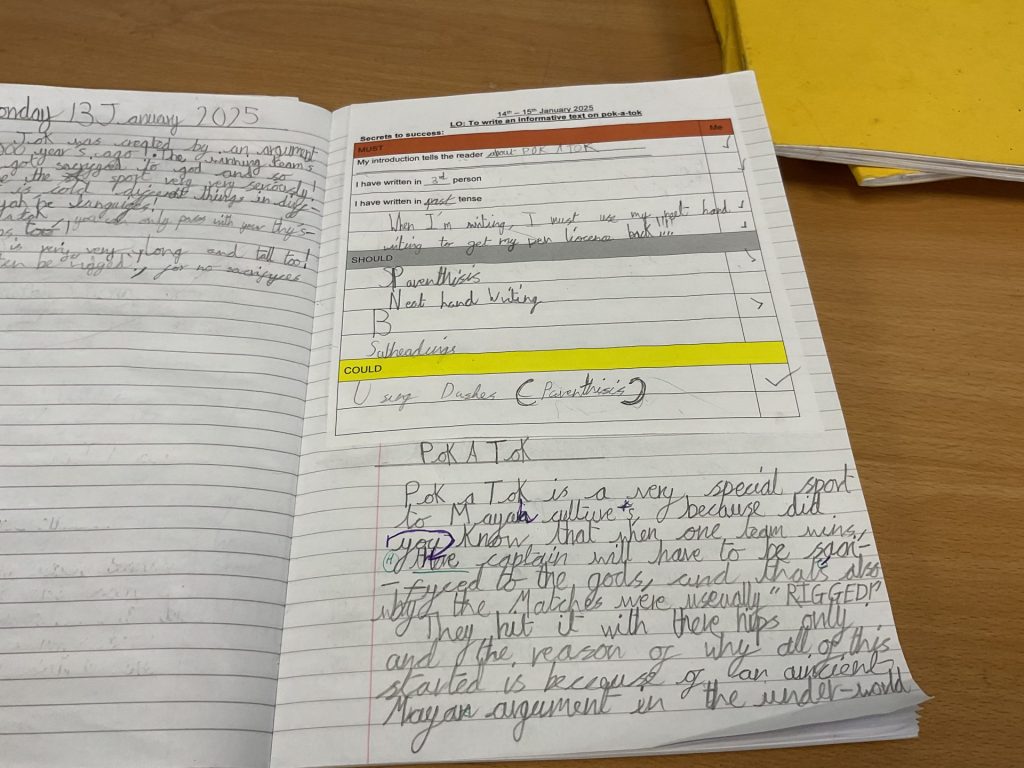 onday 13 January 2025
Tok was created by an argument
year's ago. The winning team's
got to god and so
the sport very very seriously!
is cold things in diff-
be languages!
you can only pass with your thy's-
too!
is very very long and tall too!
be rigged, for no
14th – 15th January 2025
LO: To write an informative text on pok-a-tok
Secrets to success:
MUST Me
My introduction tells the reader about POK A TOK
I have written in 3rd person
I have written in past tense
When I'm writing, I must use my hand
writing to get my pen back
SHOULD
Parenthisis
Neat hand writing
B
Subheadings
COULD
Using Dashes (Parenthisis)
POK A TOK
Pok a Tok is a very special sport
to Mayan culture because did
you know that when one team wins,
there captain will have to be
-fyced to the gods, and thats also
why the Matches were useually "RIGGED!"
They hit it with there hips only
and the reason of why all of this
started is beccause of an auncient
Mayan argument in the under-world